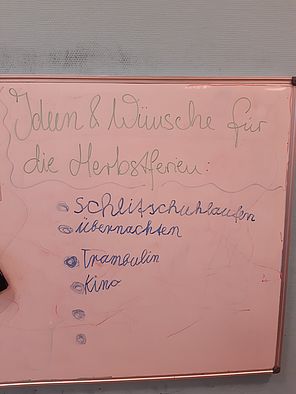 Ideen & Wünsche für
die Herbstferien:
Schlitschuhlaufen
übernachten
Trampulin
Kino